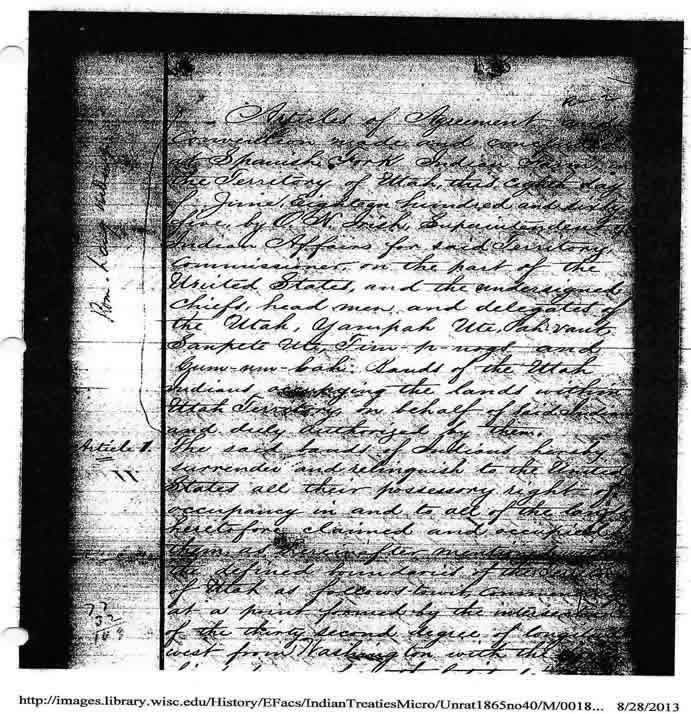 Articles of Agreement and
Convention made and concluded
at Spanish Fork Indian Farm
the Territory of Utah, this eighth day
of June, Eighteen hundred and sixty
five, by O. H. Irish, Superintendent of
Indian Affairs for said Territory
Commissioner, on the part of the
United States, and the undersigned
chiefs, head men and delegates of
the Utah, Yampah Ute, Pah-vant,
Sanpete Ute, Tim-p-nogs and
Cum-um-bah Bands of the Utah
Indians occupying the lands within
Utah Territory, on behalf of said Indians
and duly authorized by them.
Article 1. The said bands of Indians hereby
surrender and relinquish to the United
States all their possessory right of
occupancy in and to all of the lands
heretofore claimed and occupied
them as hereinafter mentioned
the defined boundaries of the
of Utah as follows towit, Commencing
at a point formed by the intersection
of the thirty second degree of longitude
west from Washington with the
http://images.library.wisc.edu/History/EFacs/IndianTreatiesMicro/Unrat1865no40/M/0018... 8/28/2013